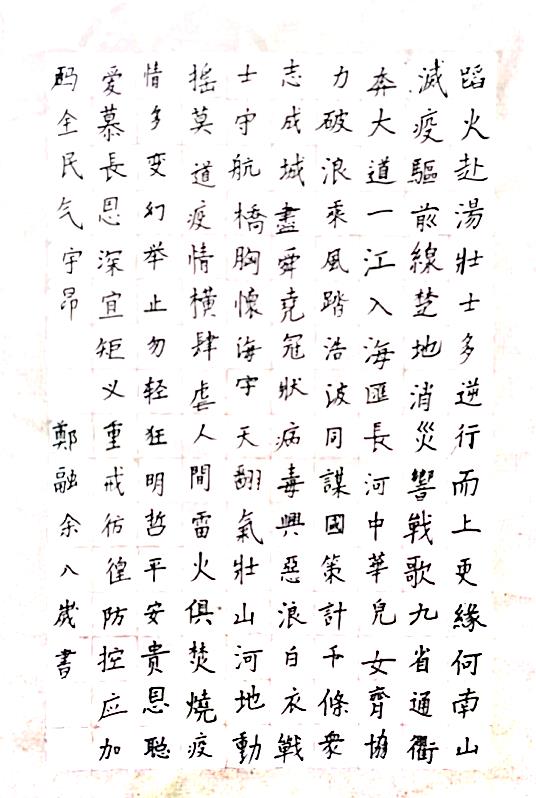 蹈火赴湯壯士多逆行而上更緣何南山
滅疫驅前線楚地消災響戰歌九省通衢
奔大道一江入海匯長河中華兒女齊協
力破浪乘風踏浩波同謀國策計千條衆
志成城盡舜堯冠狀病毒興惡浪白衣戰
士守航橋胸懷海宇天翻氣壯山河地動
搖莫道疫情橫肆虐人間雷火俱焚燒疫
情多变幻举止勿轻狂明哲平安貴恩聪
愛慕長恩深宜矩义重戒彷徨防控应加
码全民气宇昂 鄭融余八歲書